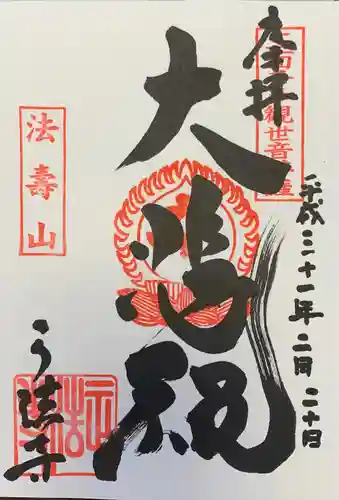 奉拝
觀世音
平成三十一年二月二十日
大悲殿
法壽山
正法寺